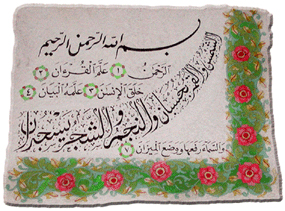 بسم الله الرحمن الرحيم
الرحمن ١ علم القرءان ٢
خلق الإنسن ٣ علمه البيان ٤
الشمس والقمر بحسبان والنجم والشجر يسجدان
والسماء رفعها ووضع الميزان ٧